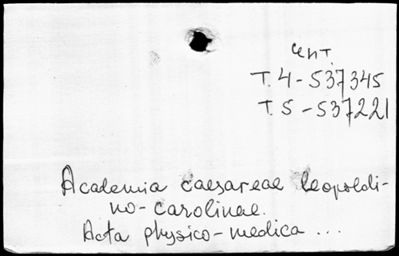 инт.
T. 4 - 537345
T. 5 - 537221
Academia caesareae leopoldi-
no-carolinae.
Acta physico-medica ...